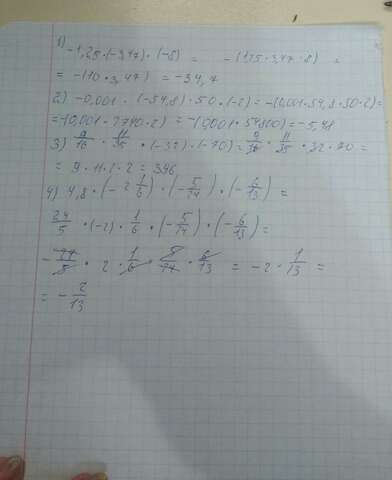 1) -1,25 · (-3,47) · (-8) = -(1,25 · 3,47 · 8) =
= -(10 · 3,47) = -34,7
2) -0,001 · (-54,8) · 50 · (-2) = -(0,001 · 54,8 · 50 · 2) =
= -(0,001 · 2740 · 2) = -(0,001 · 54800) = -5,48
3) 9/16 · 11/35 · (-32) · (-70) = 9/16 · 11/35 · 32 · 70 =
= 9 · 11 · 2 · 2 = 396
4) 4,8 · (-2 1/6) · (-5/24) · (-6/13) =
24/5 · (-2) · 1/6 · (-5/24) · (-6/13) =
- 24/5 · 2 · 1/6 · 5/24 · 6/13 = -2 · 1/13 =
= - 2/13